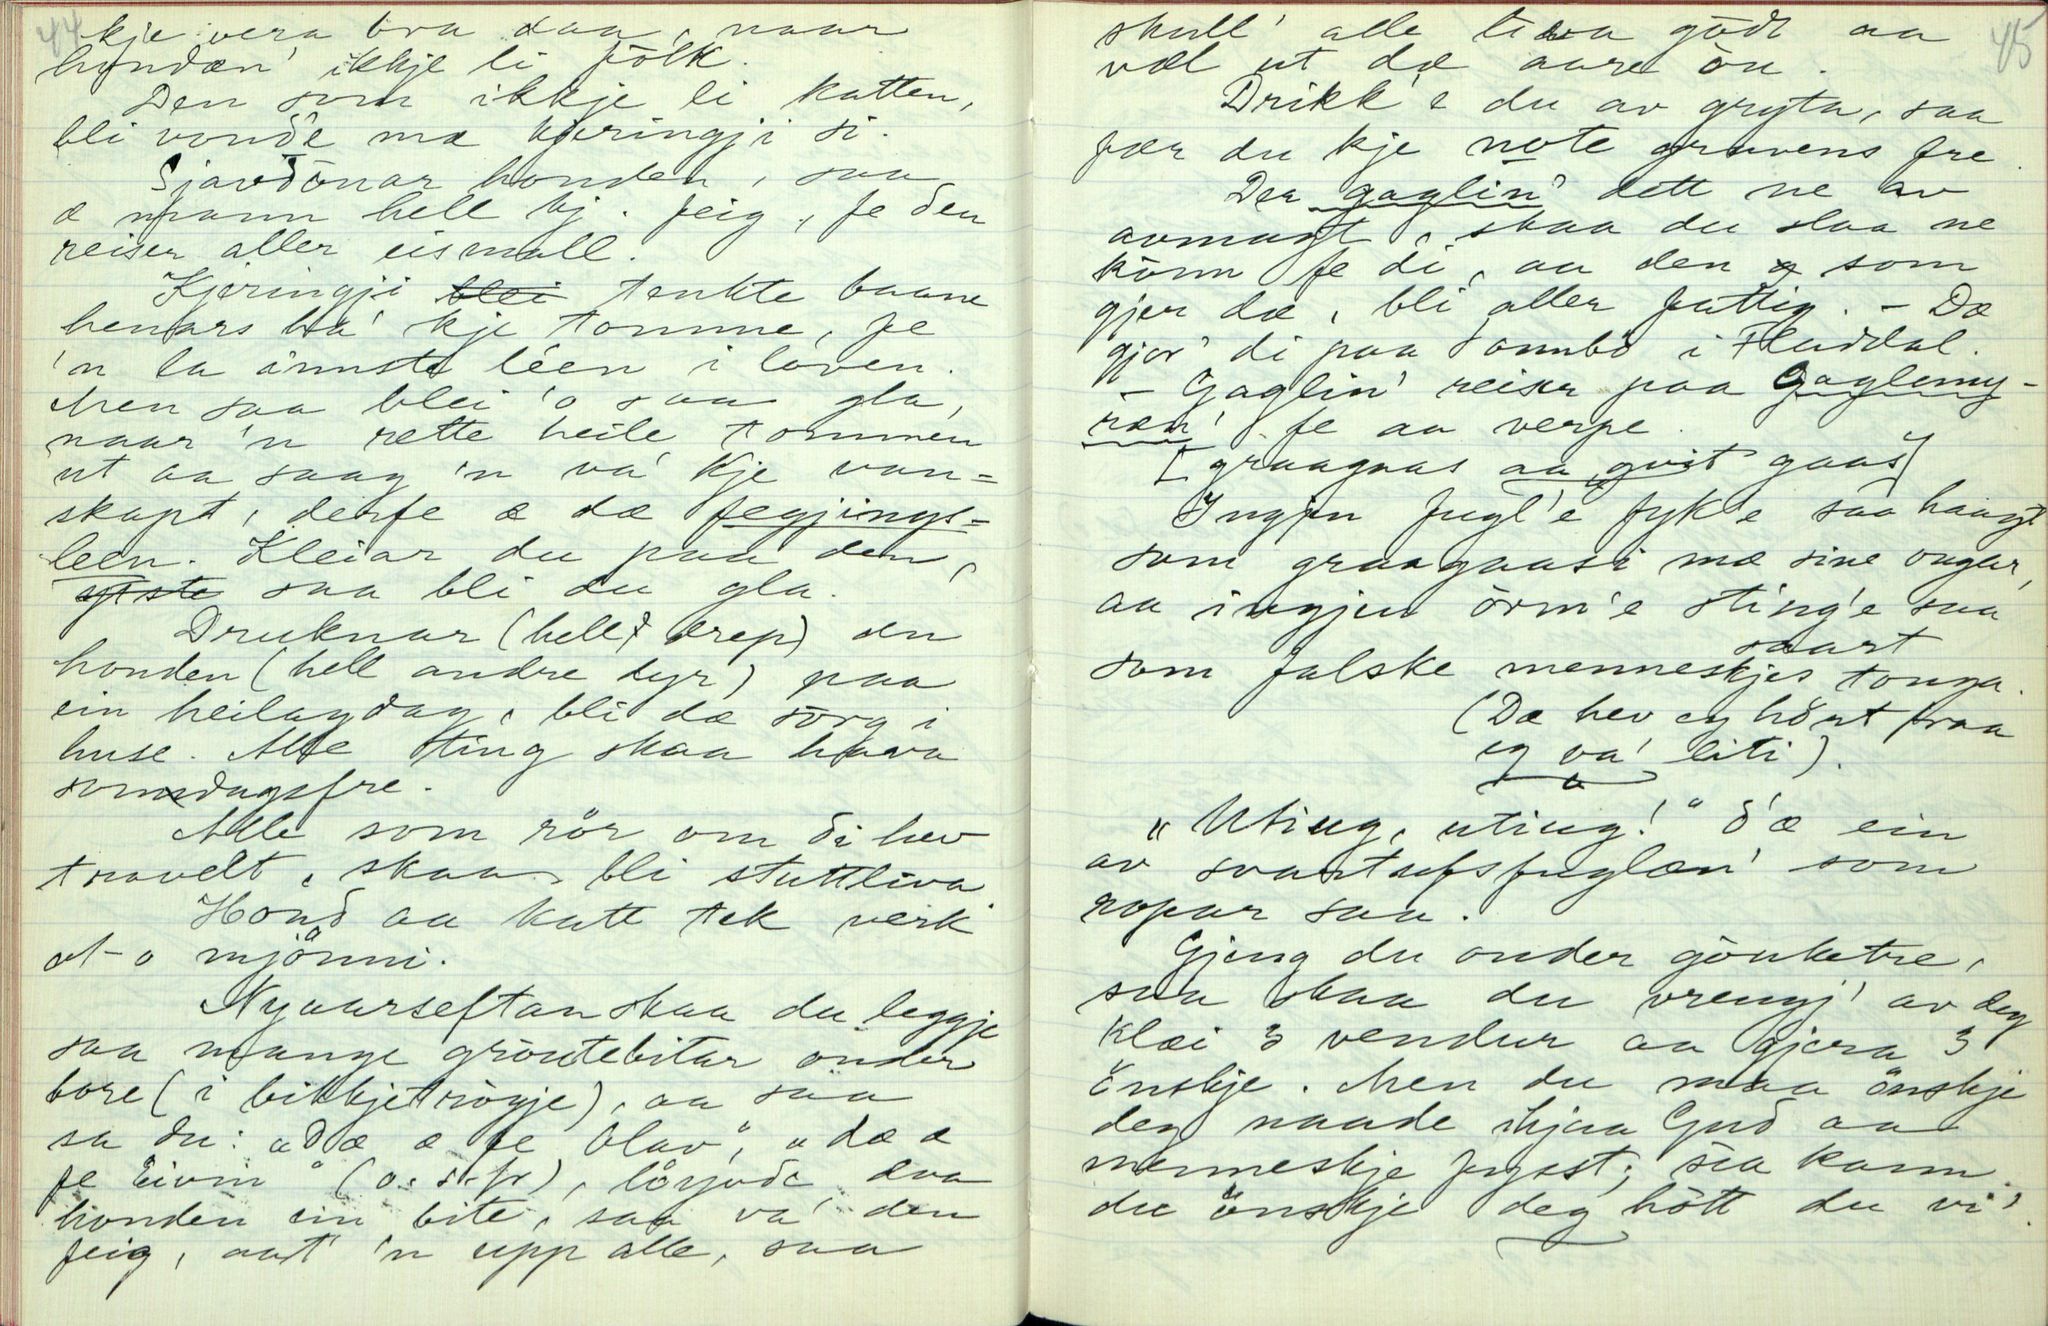 44
kje vera bra daa, naar
hondæn' ikkje li fôlk.
Den som ikkje li katten,
bli vonde mæ kjeringji si.
Sjavdönar honden, saa
æ mann hell kj. feig, fe den
reiser aller eismall.
Kjeringji blei tenkte baane
henars ha' kje tomme, fe
'n la innste léen i låven.
Men saa blei 'o saa gla,
naar 'n rette heile tommen
ut aa saag 'n va' kje van-
skapt, derfe æ dæ fegjings-
leen. Kleiar du paa den,
ytste saa bli du gla.
Druknar (hell drep) du
honden (hell andre dyr) paa
ein heilagdag, bli dæ sörg i
huse. Alle ting skaa hava
somdagsfre.
Alle som rör om di hev
travelt, skaa bli stuttliva
Hond aa katt tek verk
ot-o mjönni.
Nyaarseftan skaa du leggje
saa mange gröutebitar onder
bore (i bikkjetrögje), aa saa
sa du: "Dæ æ fe Olav", "dæ æ
fe Eivin" (o. s. fr), löyvde daa
honden ein bite, saa va' den
feig, aat 'n upp alle, saa
45
skull' alle liva gödt aa
væl ut dæ aare öu.
Drikk'e du av gryta, saa
fær du kje note gravens fre.
Daa gaglin' dett ne av
avmagt, skaa du slaa ne
könn fe di, aa den og som
gjer dæ, bli aller fattig. - Dæ
gjor' di paa Sannbö i Flaaddal.
- Gaglin' reiser paa Gaglemy-
ræn' fe aa verpe.
[graagaas aa gvit gaas]
Ingjen fugl'e fyk'e saa haagt
som graagaasi mæ sine ongar,
aa ingjen örm'e sting'e saa
saart
som falske menneskjes tonga.
(Dæ hev eg hört fraa
eg va' liti).
"Uting, uting!" d'æ ein
av svartufsfuglæn' som
ropar saa.
Gjeng du onder göuketre,
saa skaa du vrengj' av deg
klæi 3 vendur aa gjera 3
önskje. Men du maa önskje
deg naade hjaa Gud aa
menneskje fysst; sia kann
du önskje deg hött du vi'.